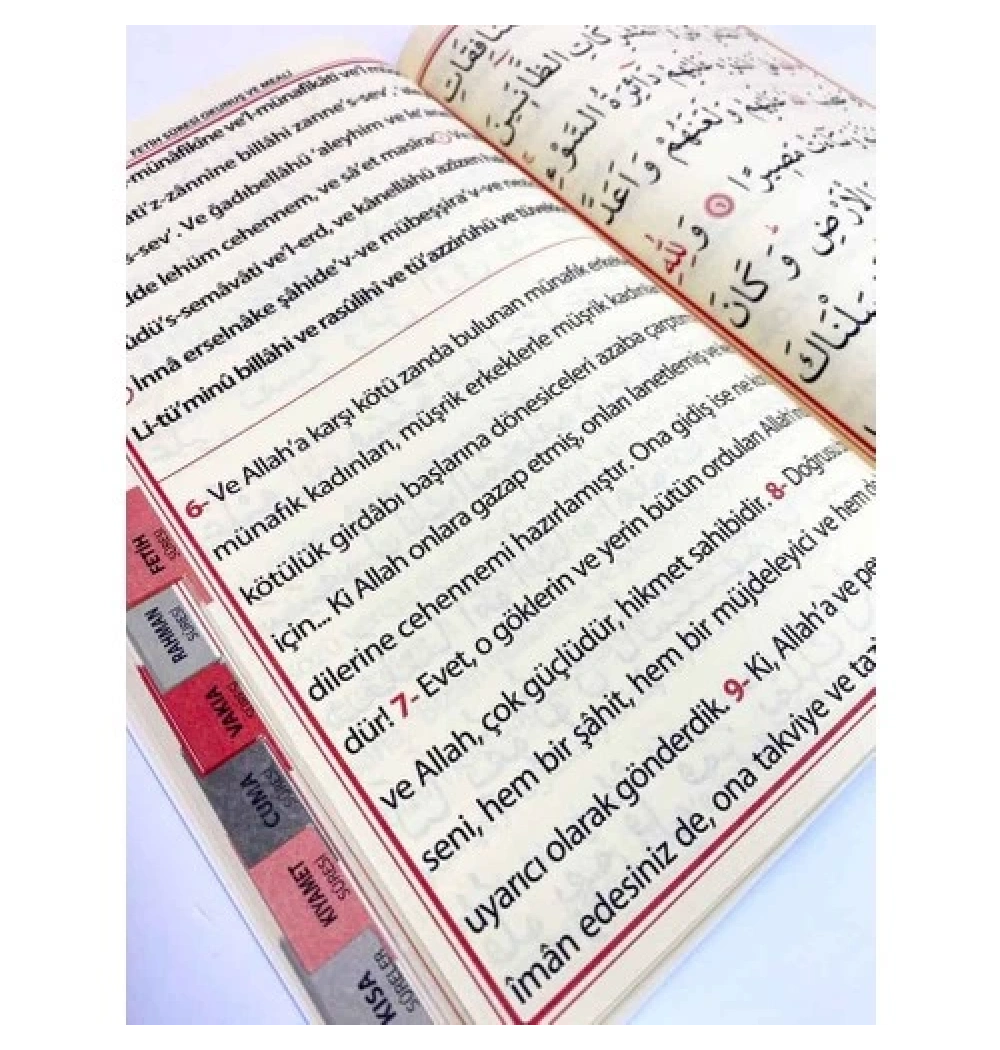 FETİH SÛRESİ OKUNUŞ VE MEÂLİ
-münâfikîne ve'l-münafikâti ve'l-
ati'z-zânnîne billâhi zanne's-sev',
s-sev'. Ve ğadıbellâhü 'aleyhim ve le'
dde lehüm cehennem, ve sâ'et masîra
üdü's-semâvâti ve'l-erd, ve kânellâhü azîzen
İnnâ erselnâke şâhide'v-ve mübeşşira'v-ve
Li-tü'minû billâhi ve rasûlihî ve tü'azzirûhü ve
6- Ve Allah'a karşı kötü zanda bulunan münafık
münafık kadınları, müşrik erkeklerle müşrik kadınları
kötülük girdâbı başlarına dönesiceleri azaba
için... Ki Allah onlara gazap etmiş, onları lanetlemiş ve
dilerine cehennemi hazırlamıştır. Ona gidiş ise ne
dür! 7- Evet, o göklerin ve yerin bütün orduları Allah'ın
ve Allah, çok güçlüdür, hikmet sahibidir. 8- Doğrusu
seni, hem bir şâhit, hem bir müjdeleyici ve hem
uyarıcı olarak gönderdik. 9- Ki, Allah'a ve pe
îmân edesiniz de, ona takviye ve ta
FETİH
SÛRESİ
RAHMAN
SÛRESİ
VAKIA
SÛRESİ
CUMA
SÛRESİ
KIYAMET
SÛRESİ
KISA
SÛRELER
كَاتِ الظَّٓانّ۪ينَ
دَٓائِرَةُ السَّوْءِ
وَلَعَنَهُمْ وَاَعَدَّ
مَص۪يرًا
وَلِلّٰهِ
الْاَرْضِ وَكَانَ